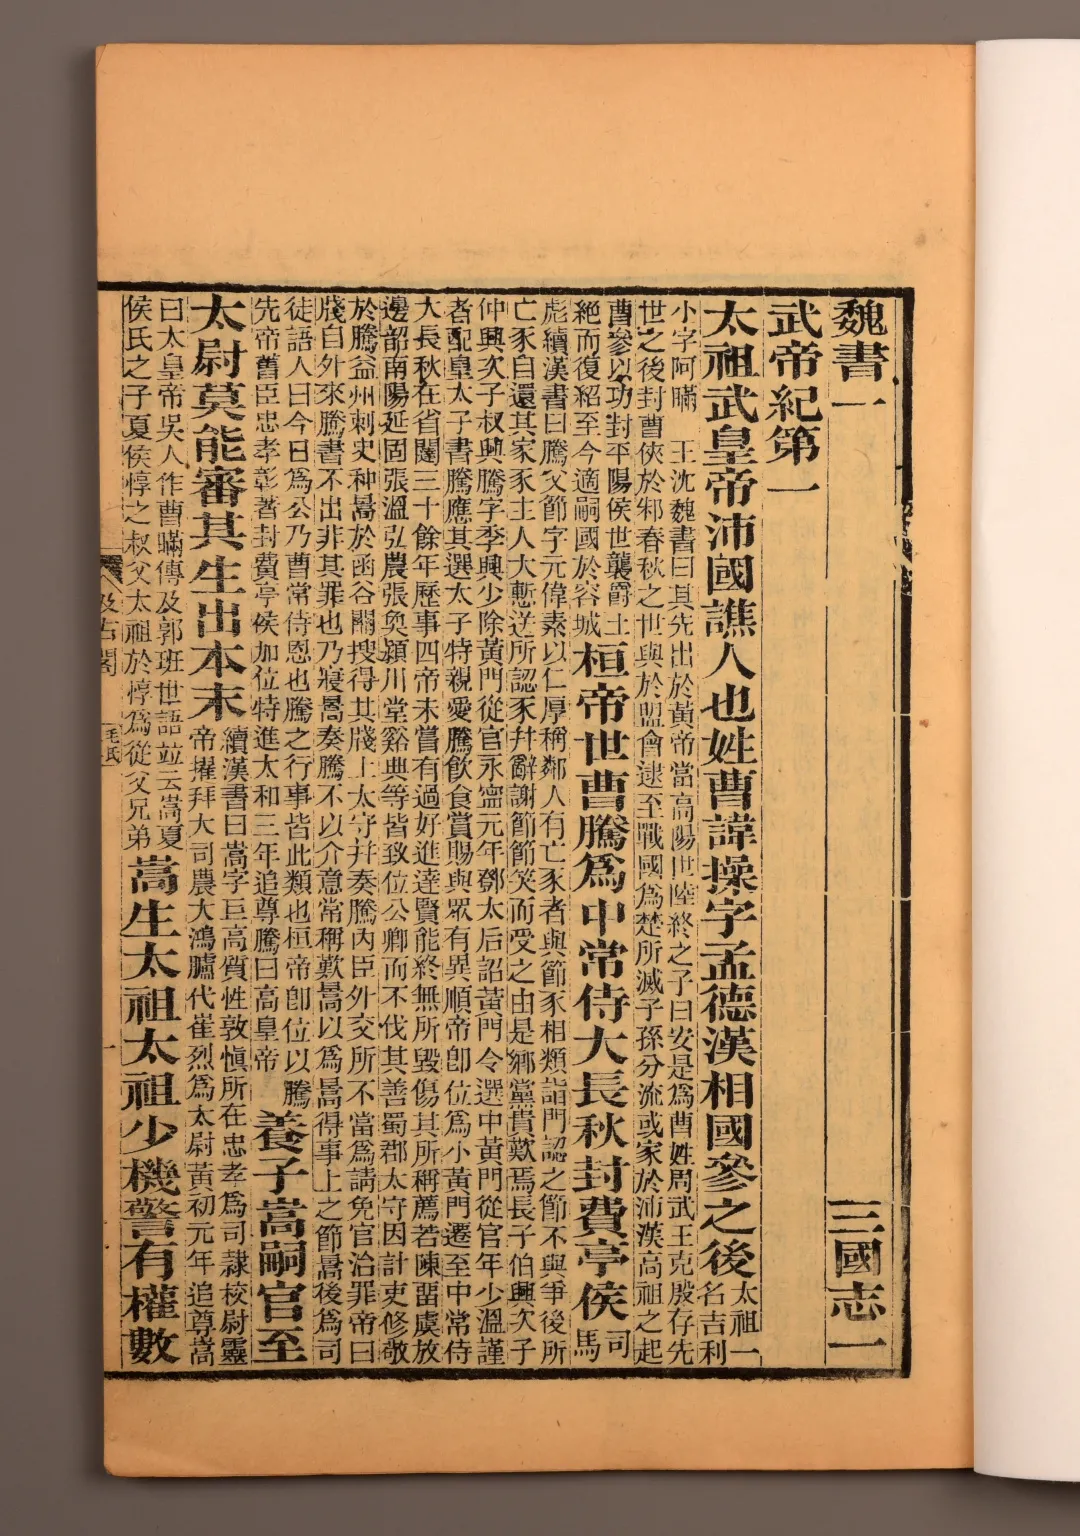 魏書一 三國志一
武帝紀第一
太祖武皇帝沛國譙人也姓曹諱操字孟德漢相國參之後
太祖一
名吉利
小字阿瞞 王沈魏書曰其先出於黃帝當高陽世陸終之子曰安是爲曹姓周武王克殷存先
世之後封曹俠於邾春秋之世與於盟會逮至戰國爲楚所滅子孫分流或家於沛漢高祖之起
曹參以功封平陽侯世襲爵土
絕而復紹至今適嗣國於容城
桓帝世曹騰爲中常侍大長秋封費亭侯
司
馬
彪續漢書曰騰父節字元偉素以仁厚稱鄰人有亡豕者與節豕相類詣門認之節不與爭後所
亡豕自還其家豕主人大慙送所認豕幷辭謝節節笑而受之由是鄉黨貴歎焉長子伯興次子
仲興次子叔興騰字季興少除黃門從官永寧元年鄧太后詔黃門令選中黃門從官年少溫謹
者配皇太子書騰應其選太子特親愛騰飲食賞賜與眾有異順帝卽位爲小黃門遷至中常侍
大長秋在省闥三十餘年歷事四帝未嘗有過好進達賢能終無所毀傷其所稱薦若陳留虞放
邊韶南陽延固張溫弘農張奐潁川堂谿典等皆致位公卿而不伐其善蜀郡太守因計吏修敬
於騰益州刺史种暠於函谷關搜得其牋上太守幷奏騰內臣外交所不當爲請免官治罪帝曰
牋自外來騰書不出非其罪也乃寢暠奏騰不以介意常稱歎暠以爲暠得事上之節暠後爲司
徒語人曰今日爲公乃曹常侍恩也騰之行事皆此類也桓帝卽位以騰
先帝舊臣忠孝彰著封費亭侯加位特進太和三年追尊騰曰高皇帝
養子嵩嗣官至
太尉莫能審其生出本末
續漢書曰嵩字巨高質性敦愼所在忠孝爲司隸校尉靈
帝擢拜大司農大鴻臚代崔烈爲太尉黃初元年追尊嵩
曰太皇帝吳人作曹瞞傳及郭班世語竝云嵩夏
侯氏之子夏侯惇之叔父太祖於惇爲從父兄弟
嵩生太祖太祖少機警有權數
汲古閣
毛氏
一